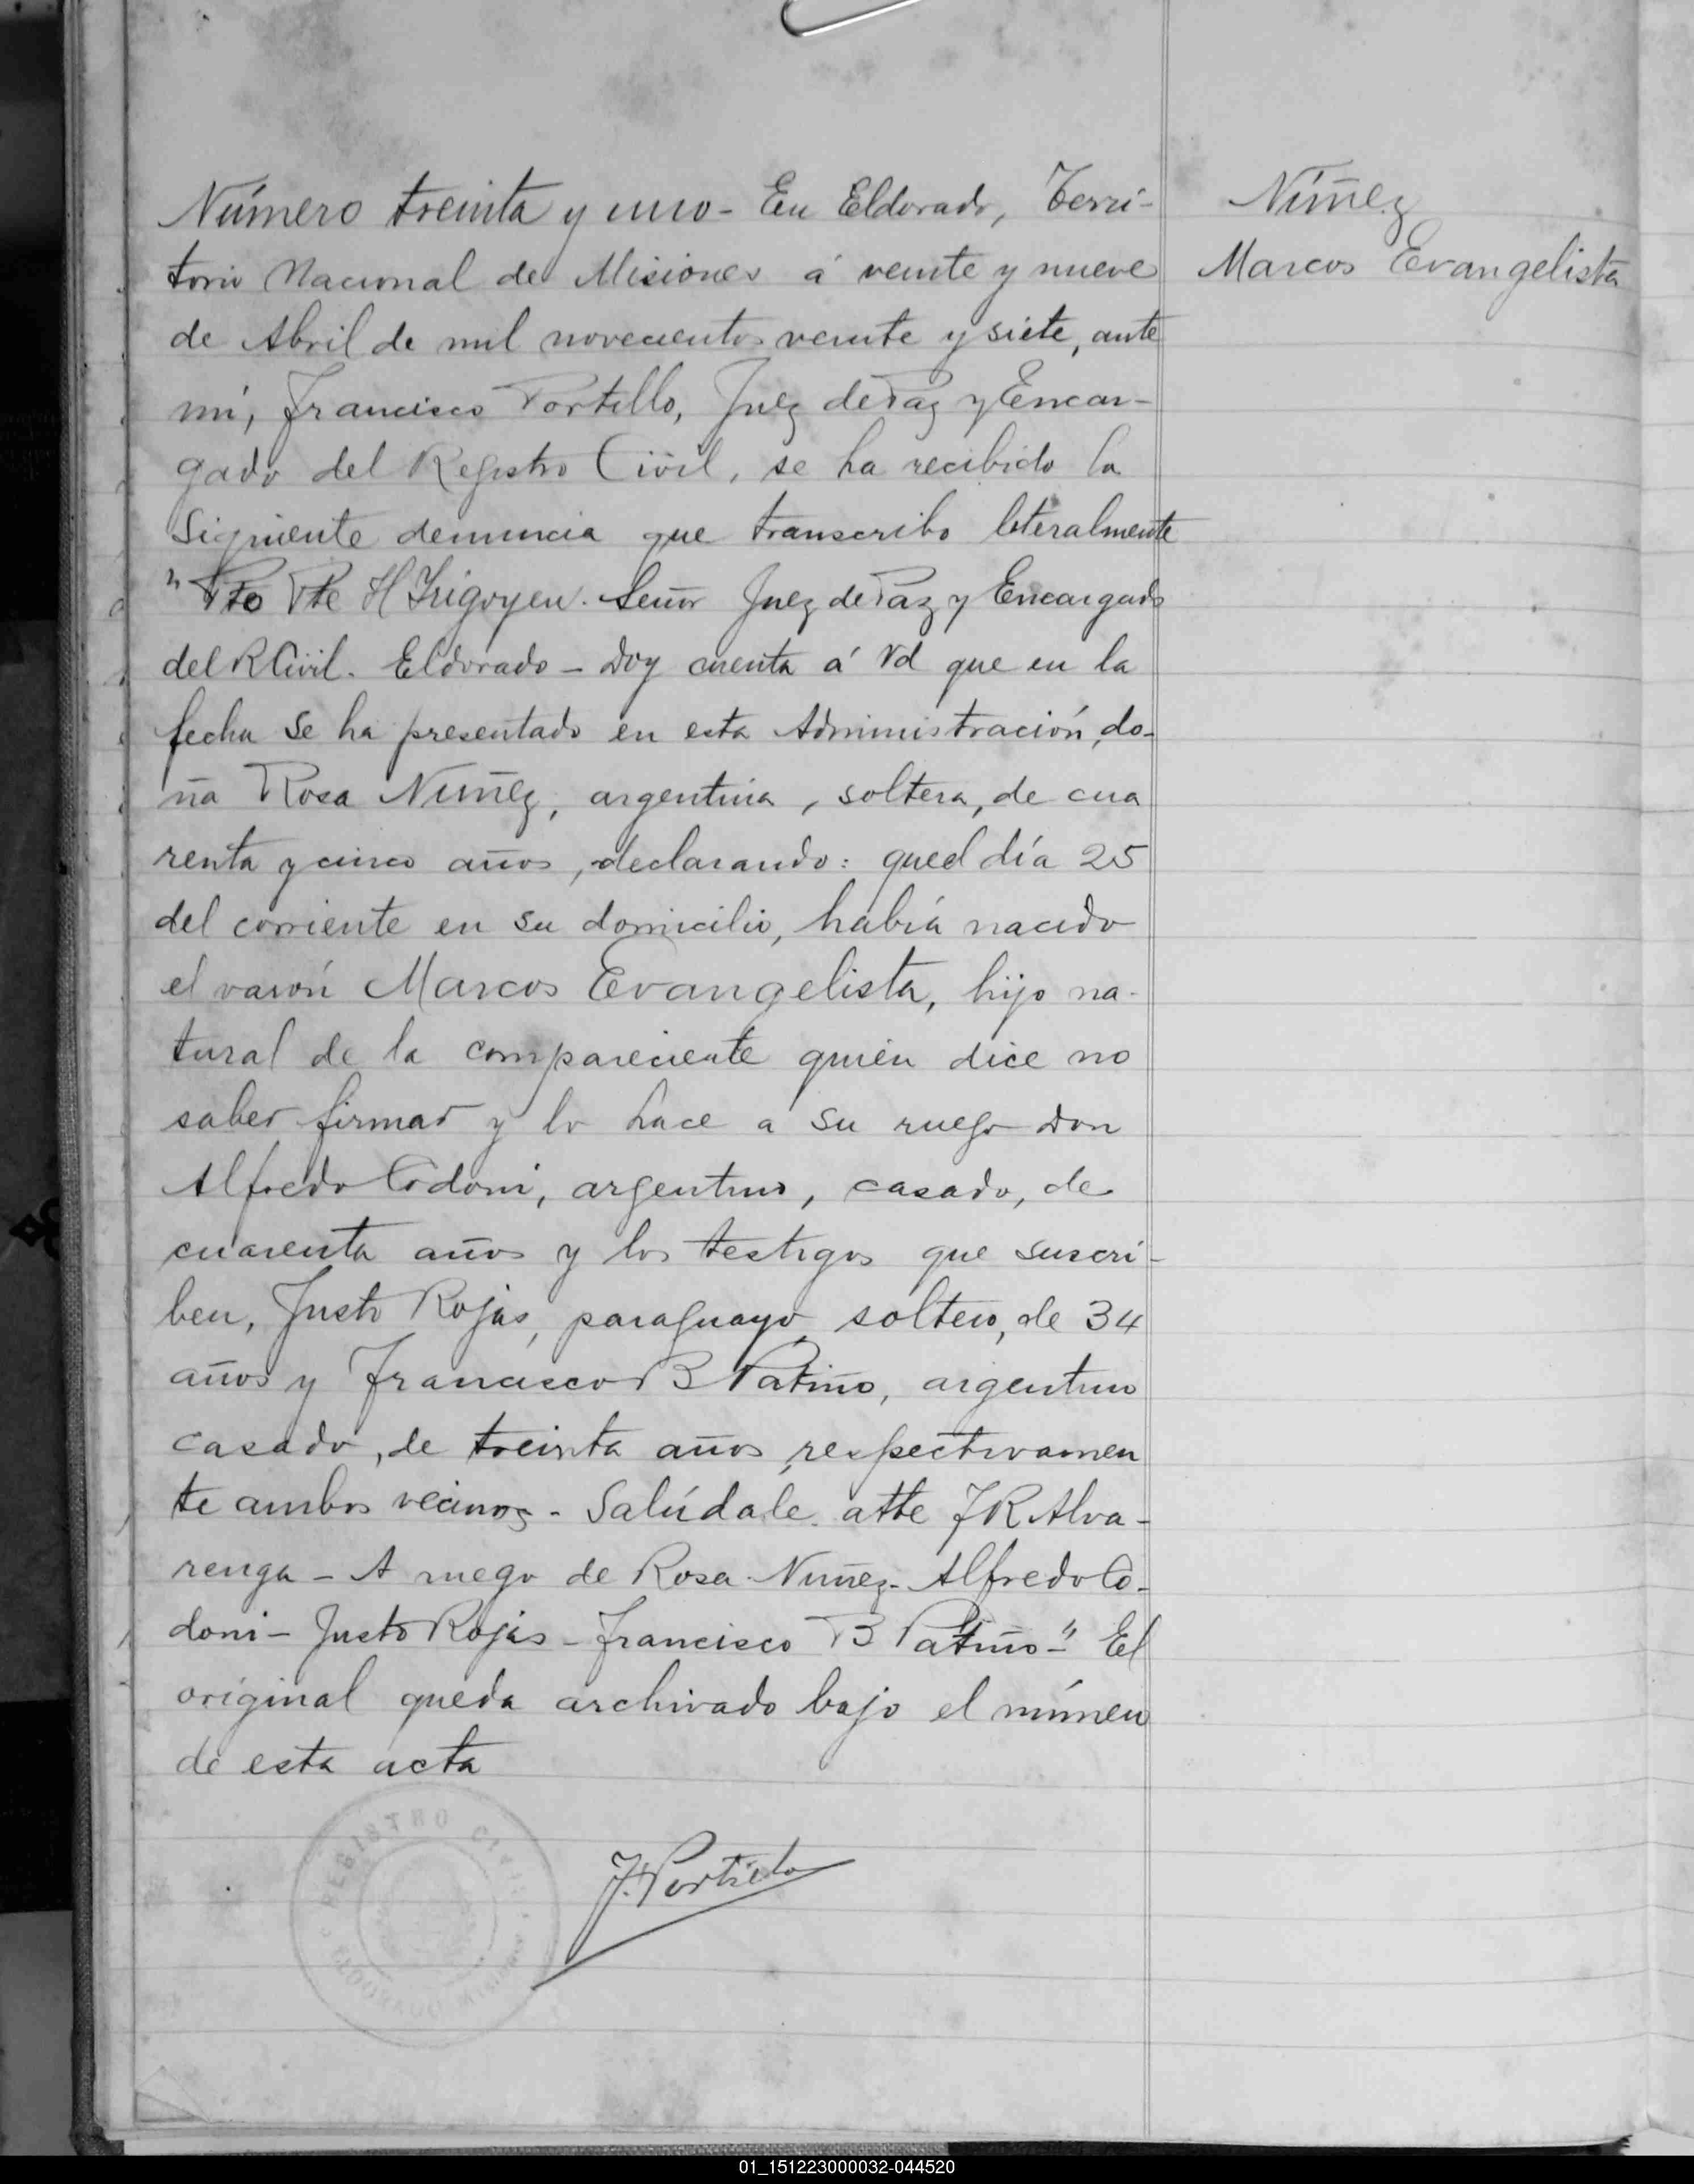 Número treinta y uno - En Eldorado, Terri-
torio Nacional de Misiones á veinte y nueve
de Abril de mil novecientos veinte y siete, ante
mí, Francisco Portillo, Juez de Paz y Encar-
gado del Registro Civil, se ha recibido la
Siguiente denuncia que transcribo literalmente
"Pto Pte H Irigoyen. Señor Juez de Paz y Encargado
del R Civil. Eldorado - Doy cuenta á Vd que en la
fecha se ha presentado en esta Administración, do-
ña Rosa Nuñez, argentina, soltera, de cua
renta y cinco años, declarando: que el día 25
del corriente en su domicilio, había nacido
el varón Marcos Evangelista, hijo na-
tural de la compareciente quién dice no
saber firmar y lo hace a su ruego Don
Alfredo Codoni, argentino, casado, de
cuarenta años y los testigos que suscri-
ben, Justo Rojas, paraguayo, soltero, de 34
años y Francisco B Patiño, argentino
casado, de treinta años, respectivamen
te ambos vecinos - Salúdale atte J R Alva-
renga - A ruego de Rosa Nuñez - Alfredo Co-
doni - Justo Rojas - Francisco B Patiño -" El
original queda archivado bajo el número
de esta acta
F. Portillo
Núñez
Marcos Evangelista
REGISTRO CIVIL
ELDORADO
01_151223000032-044520